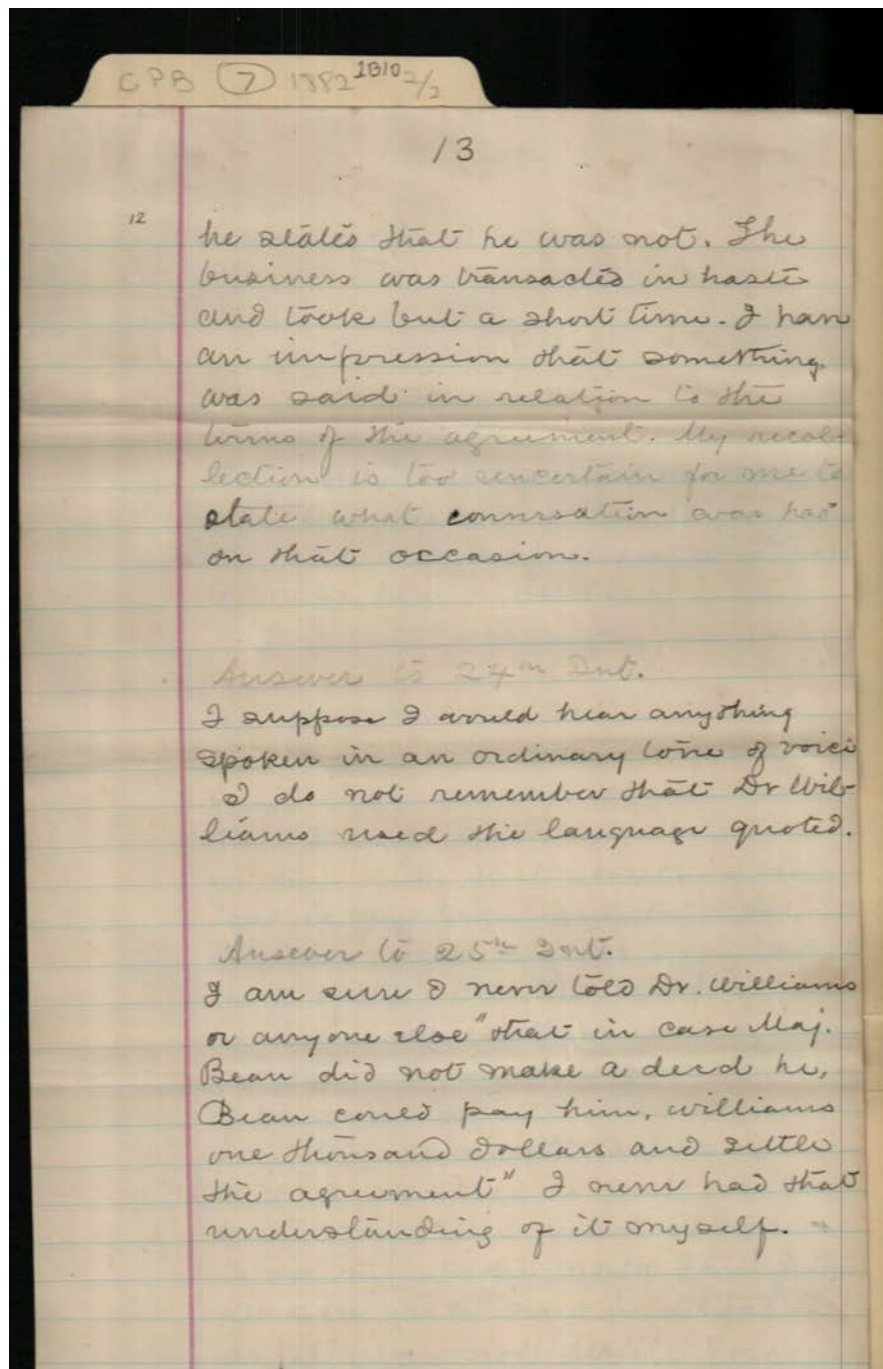 CPB 7 1882 1B10 2/2
13
12
he states that he was not. The
business was transacted in haste
and took but a short time. I have
an impression that something
was said in relation to the
terms of the agreement. My recol-
lection is too uncertain for me to
state what conversation was had
on that occasion.
Answer to 24th Int.
I suppose I would hear anything
spoken in an ordinary tone of voice
I do not remember that Dr Wil-
liams used the language quoted.
Answer to 25th Int.
I am sure I never told Dr. Williams
or anyone else "that in case Maj.
Bean did not make a deed he,
Bean could pay him, Williams
one thousand dollars and settle
the agreement" I never had that
understanding of it myself.